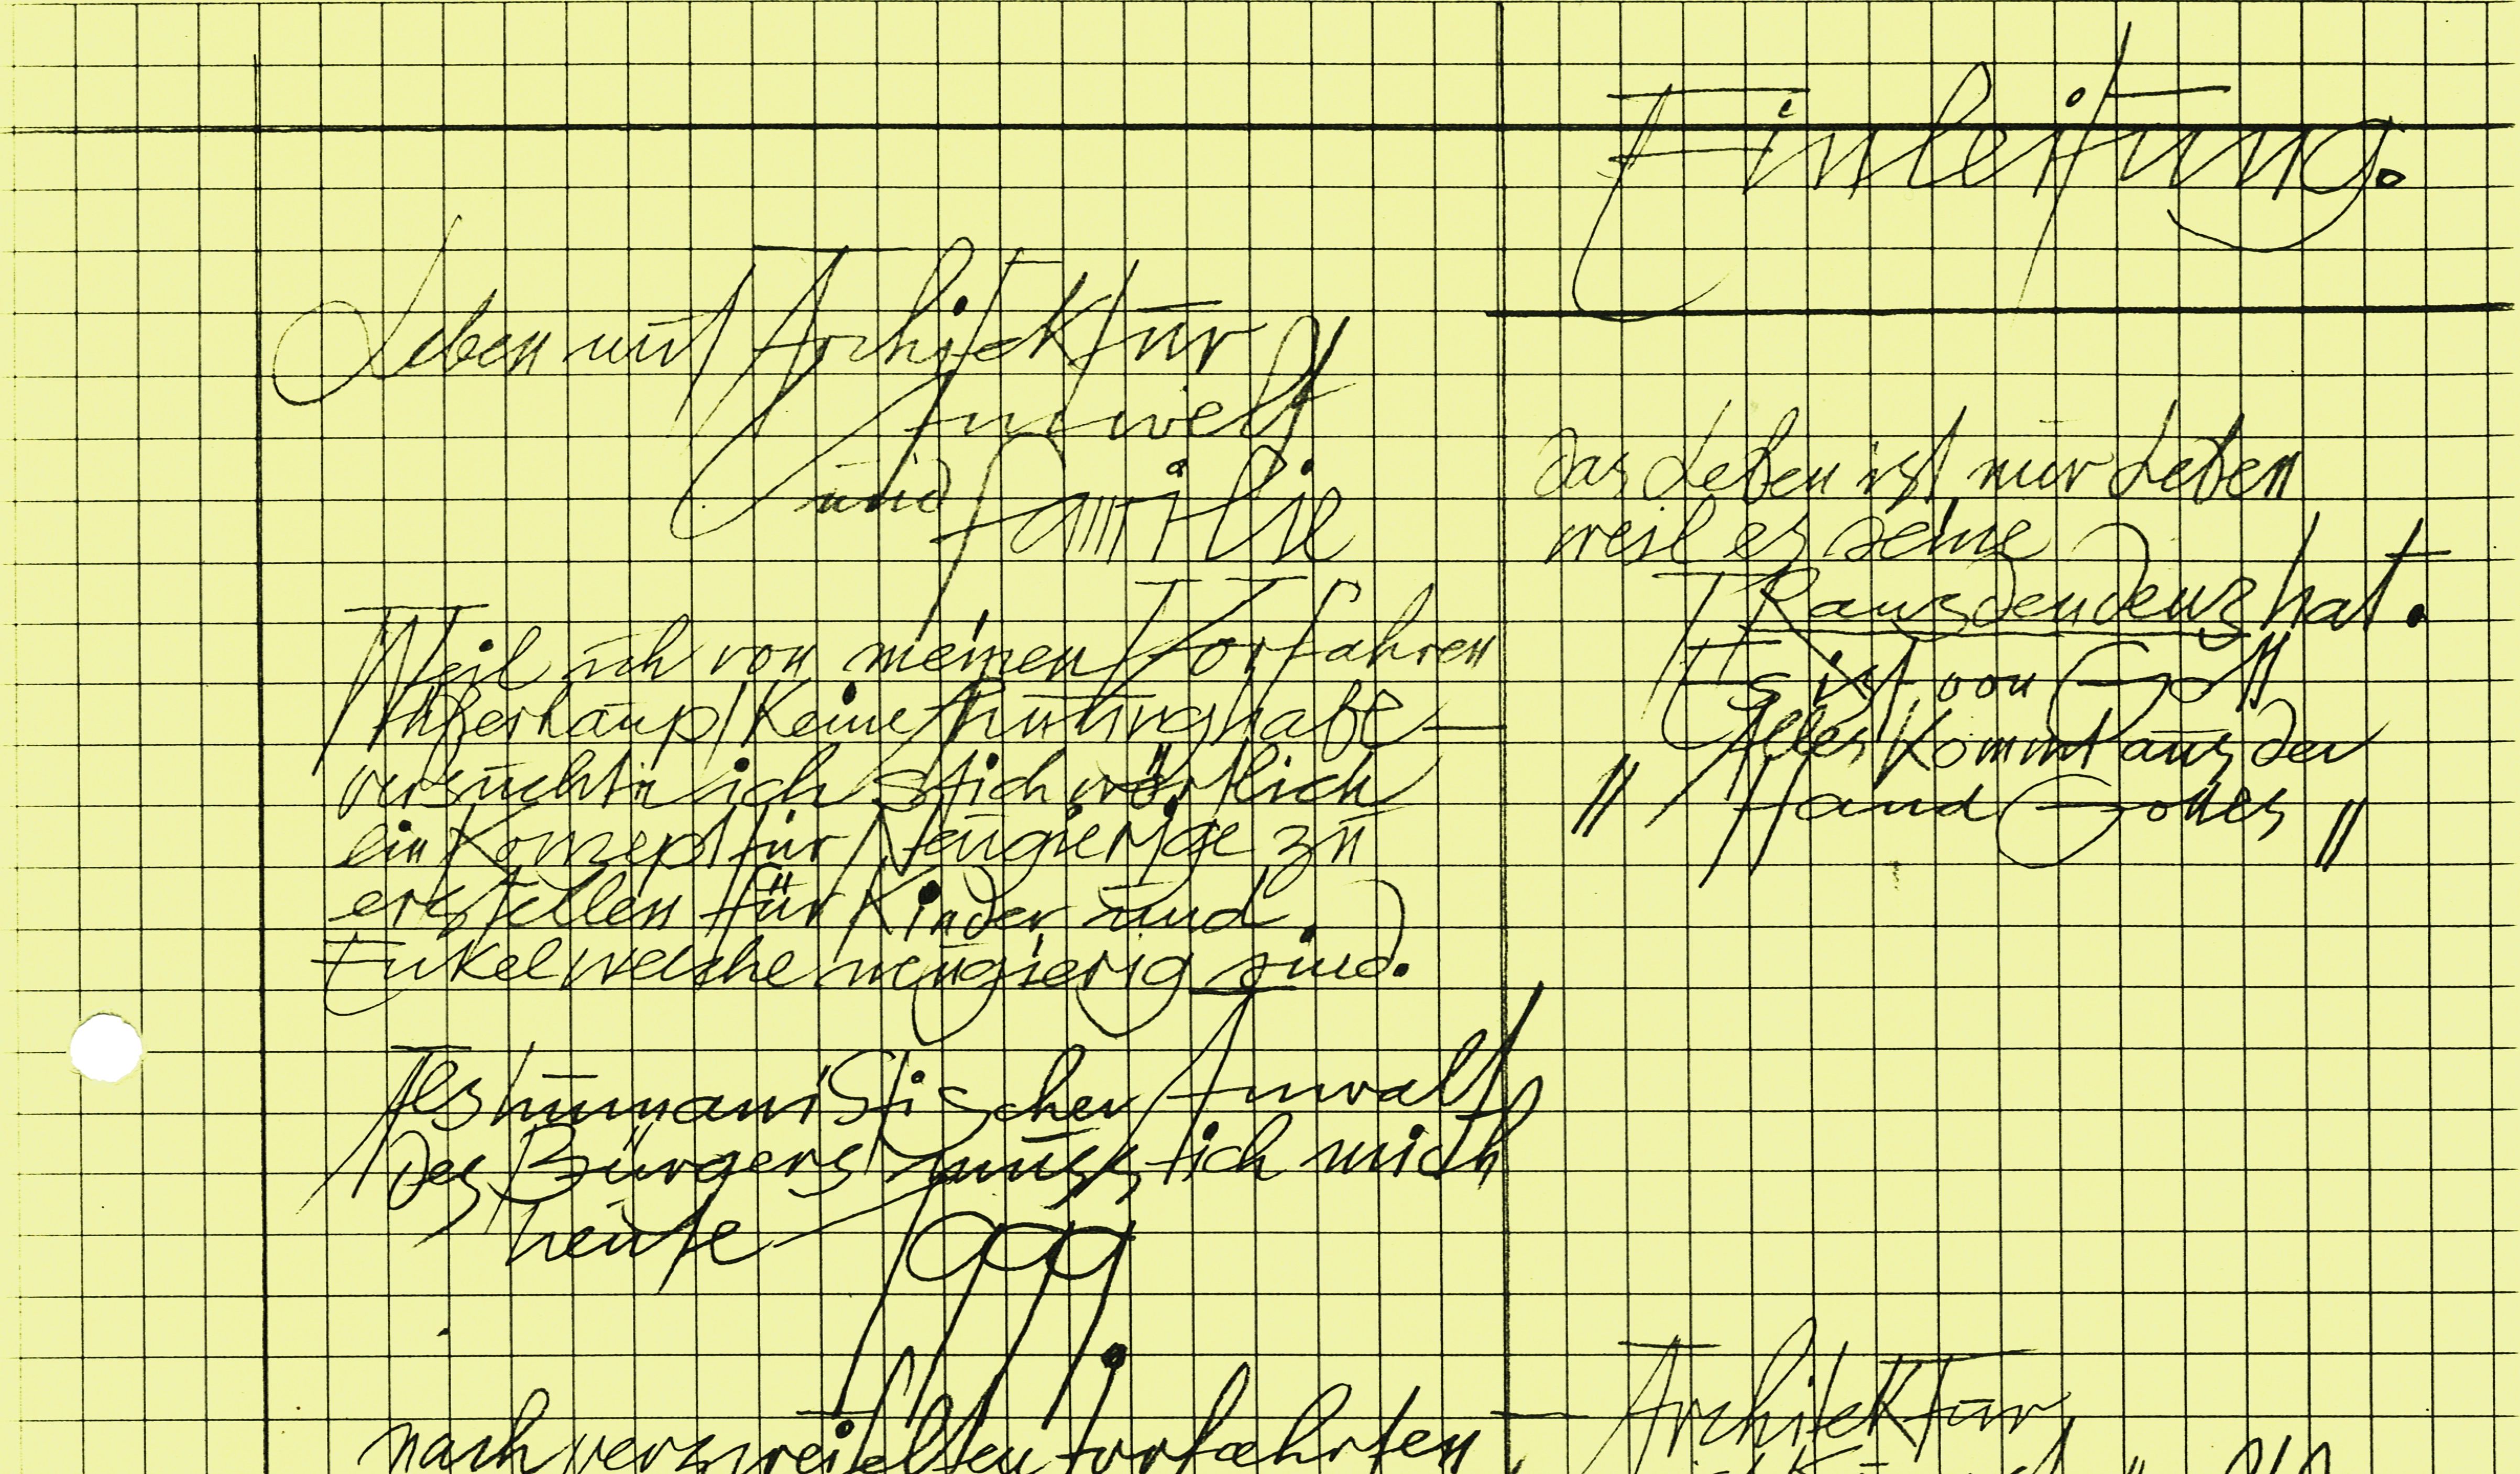 Einleitung.
Leben mit Architektur
Umwelt
und Familie
Weil ich von meinen Vorfahren
überhaupt keine Ahnung habe —
versuchte ich stichwörtlich
ein Konzept für Neugierige zu
erstellen für Kinder und
Enkel welche neugierig sind.
Als humanistischer Anwalt
des Bürgers muss ich mich
heute
nach verzweifelten
das Leben ist nur Leben
weil es seine
TRansdendenz hat.
Es ist von Gott
Alles kommt aus der
" Hand Gottes "
— Architektur